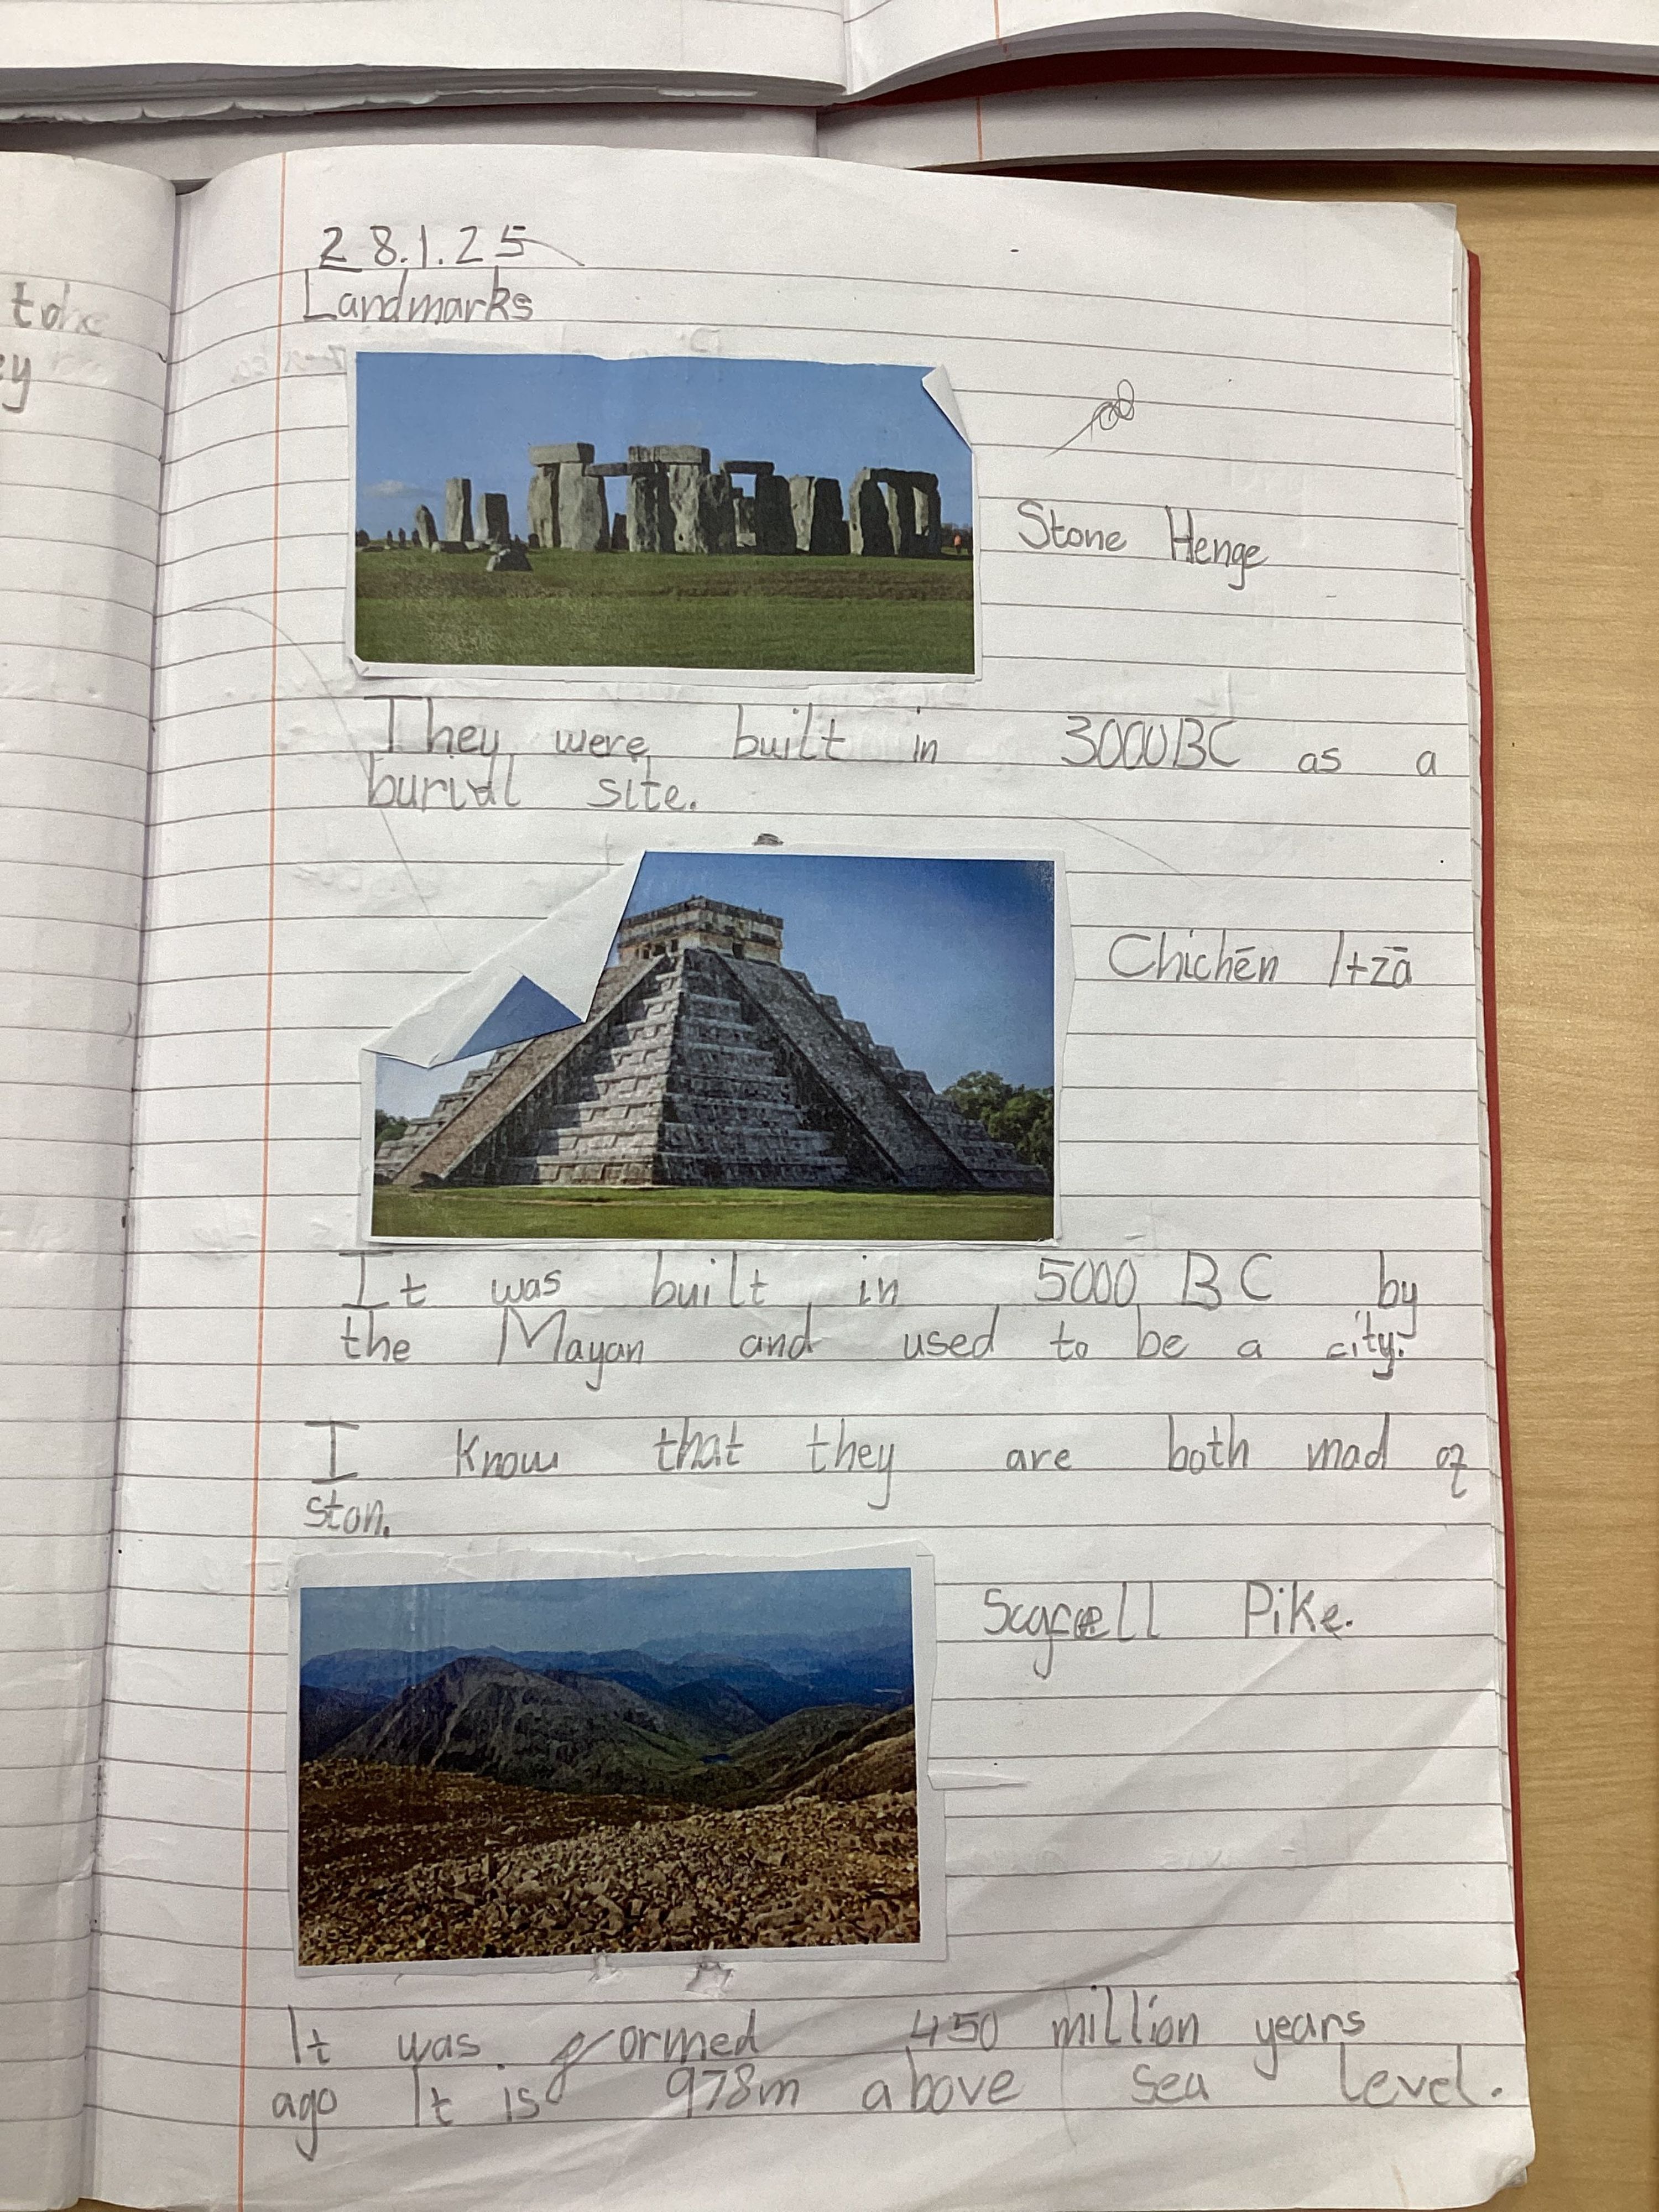 28.1.25
Landmarks
Stone Henge
They were built in 3000BC as a
burial site.
Chichēn Itzā
It was built in 5000 BC by
the Mayan and used to be a city.
I know that they are both mad of
ston.
Pike.
It was formed 450 million years
ago It is 978m above sea level.